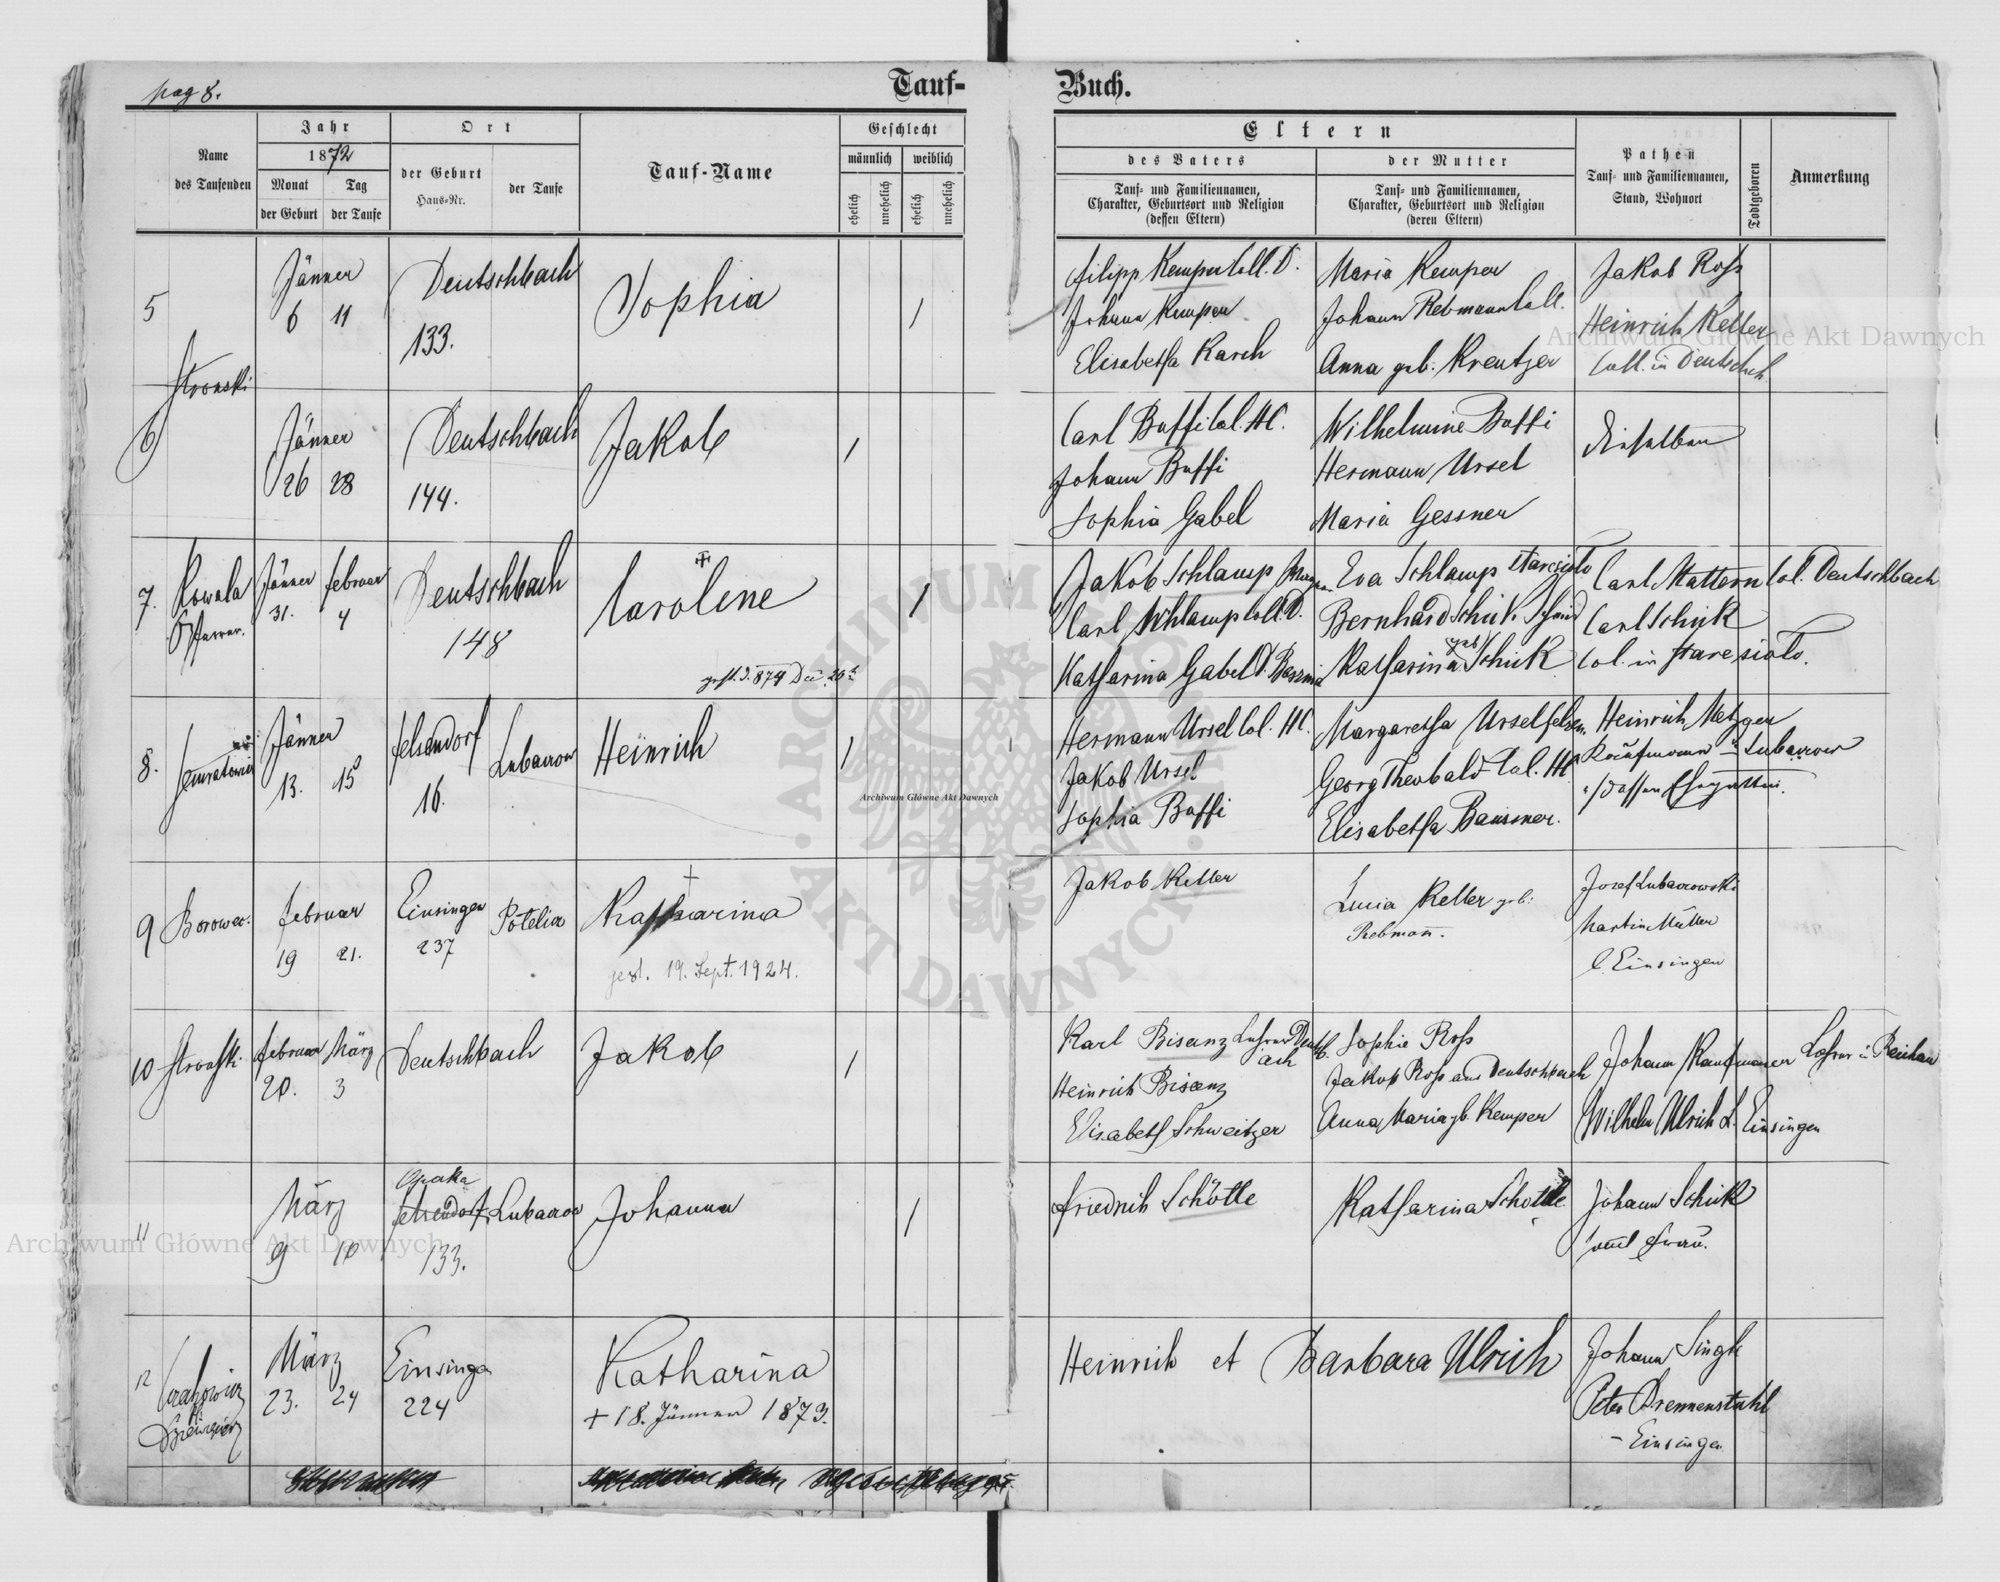 pag 8.
Tauf-
Buch.
Name
des Taufenden
Jahr
1872
Monat
der Geburt
Tag
der Taufe
Ort
der Geburt
Haus-Nr.
der Taufe
Tauf-Name
Geschlecht
männlich
weiblich
ehelich
unehelich
ehelich
unehelich
Eltern
des Vaters
Tauf- und Familiennamen,
Charakter, Geburtsort und Religion
(dessen Eltern)
der Mutter
Tauf- und Familiennamen,
Charakter, Geburtsort und Religion
(deren Eltern)
Pathen
Tauf- und Familiennamen,
Stand, Wohnort
Todtgeboren
Anmerkung
5
Stronski
Jänner
6 11
Deutschbach
133.
Sophia
1
Filipp Kemper Coll. D.
Johann Kemper
Elisabetha Karch
Maria Kemper
Johann Rebmann Coll.
Anna geb. Kreutzer
Jakob Ross
Heinrich Keller
Coll. in Deutschb.
6
Jänner
26 28
Deutschbach
144.
Jakob
1
Carl Buffi Col. HC.
Johann Buffi
Sophia Gabel
Wilhelmine Buffi
Hermann Ursel
Maria Gessner
Dieselben
7.
Kowala
Pfarrer.
Jänner
31.
Februar
4
Deutschbach
148
Caroline
gest. J. 879 Dec 26
1
Jakob Schlamp
Carl Schlamp Coll. D.
Katharina Gabel D.
Eva Schlamp Staresiolo
Bernhard Schick Schmid
Katharina geb Schick
Carl Mattern Col. Deutschbach
Carl Schick
Col. in Staresiolo.
8.
Jänner
13. 15
Felsendorf
16.
Lubaczow
Heinrich
1
Hermann Ursel Col. HC.
Jakob Ursel
Sophia Buffi
Margaretha Ursel Felsen.
Georg Theobald Col. HC
Elisabetha Bausner.
Heinrich Metzger
Kaufmann in Lubaczow
dessen Ehegattin.
9
Borower.
Februar
19 21.
Einsingen
237
Potelicz
Katharina
gest. 19. Sept. 1924.
Jakob Keller
Lucia Keller geb.
Rebmann.
Josef Lubaczowski
Martin Müller
C. Einsingen
10
Stronski
Februar
20.
März
3
Deutschbach
Jakob
1
Karl Bisanz Lehrer Deutschb.
ach
Heinrich Bisanz
Elisabeth Schweitzer
Sophie Ross
Jakob Ross aus Deutschbach
Anna Maria gb Kemper
Johann Kaufmann Lehrer in Reichau
Wilhelm Ulrich L. Einsingen
11
März
9 10
Opaka
Felsendorf
133.
Lubaczow
Johanna
1
Friedrich Schötle
Katharina Schötle
Johann Schick
und Frau.
12
März
23. 24
Einsingen
224
Katharina
+ 18. Jänner 1873.
Heinrich et Barbara Ulrich
Johann Singk
Peter Brennenstuhl
- Einsingen
Archiwum Główne Akt Dawnych
Archiwum Główne Akt Dawnych
Archiwum Główne Akt Dawnych
ARCHIWUM GŁÓWNE AKT DAWNYCH